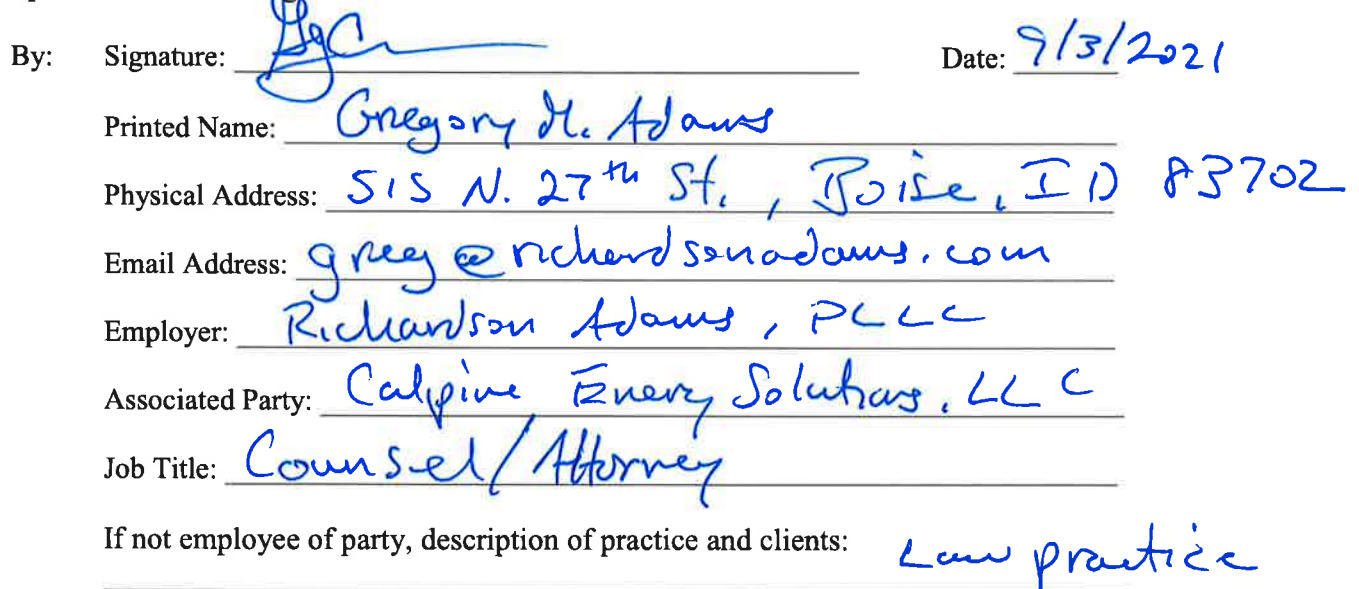 By: Signature: Date: 9/3/2021
Printed Name: Gregory M. Adams
Physical Address: 515 N. 27th St., Boise, ID 83702
Email Address: greg@richardsonadams.com
Employer: Richardson Adams, PLLC
Associated Party: Calpine Energy Solutions, LLC
Job Title: Counsel/Attorney
If not employee of party, description of practice and clients: Law practice